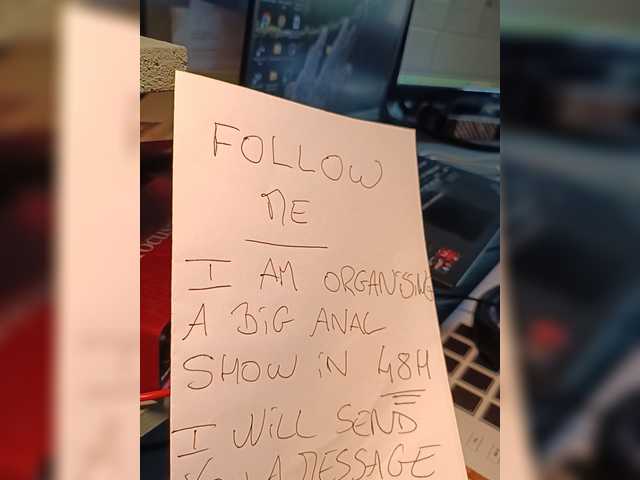 FOLLOW
ME
I AM ORGANISING
A BIG ANAL
SHOW IN 48H
I WILL SEND
YOU A MESSAGE